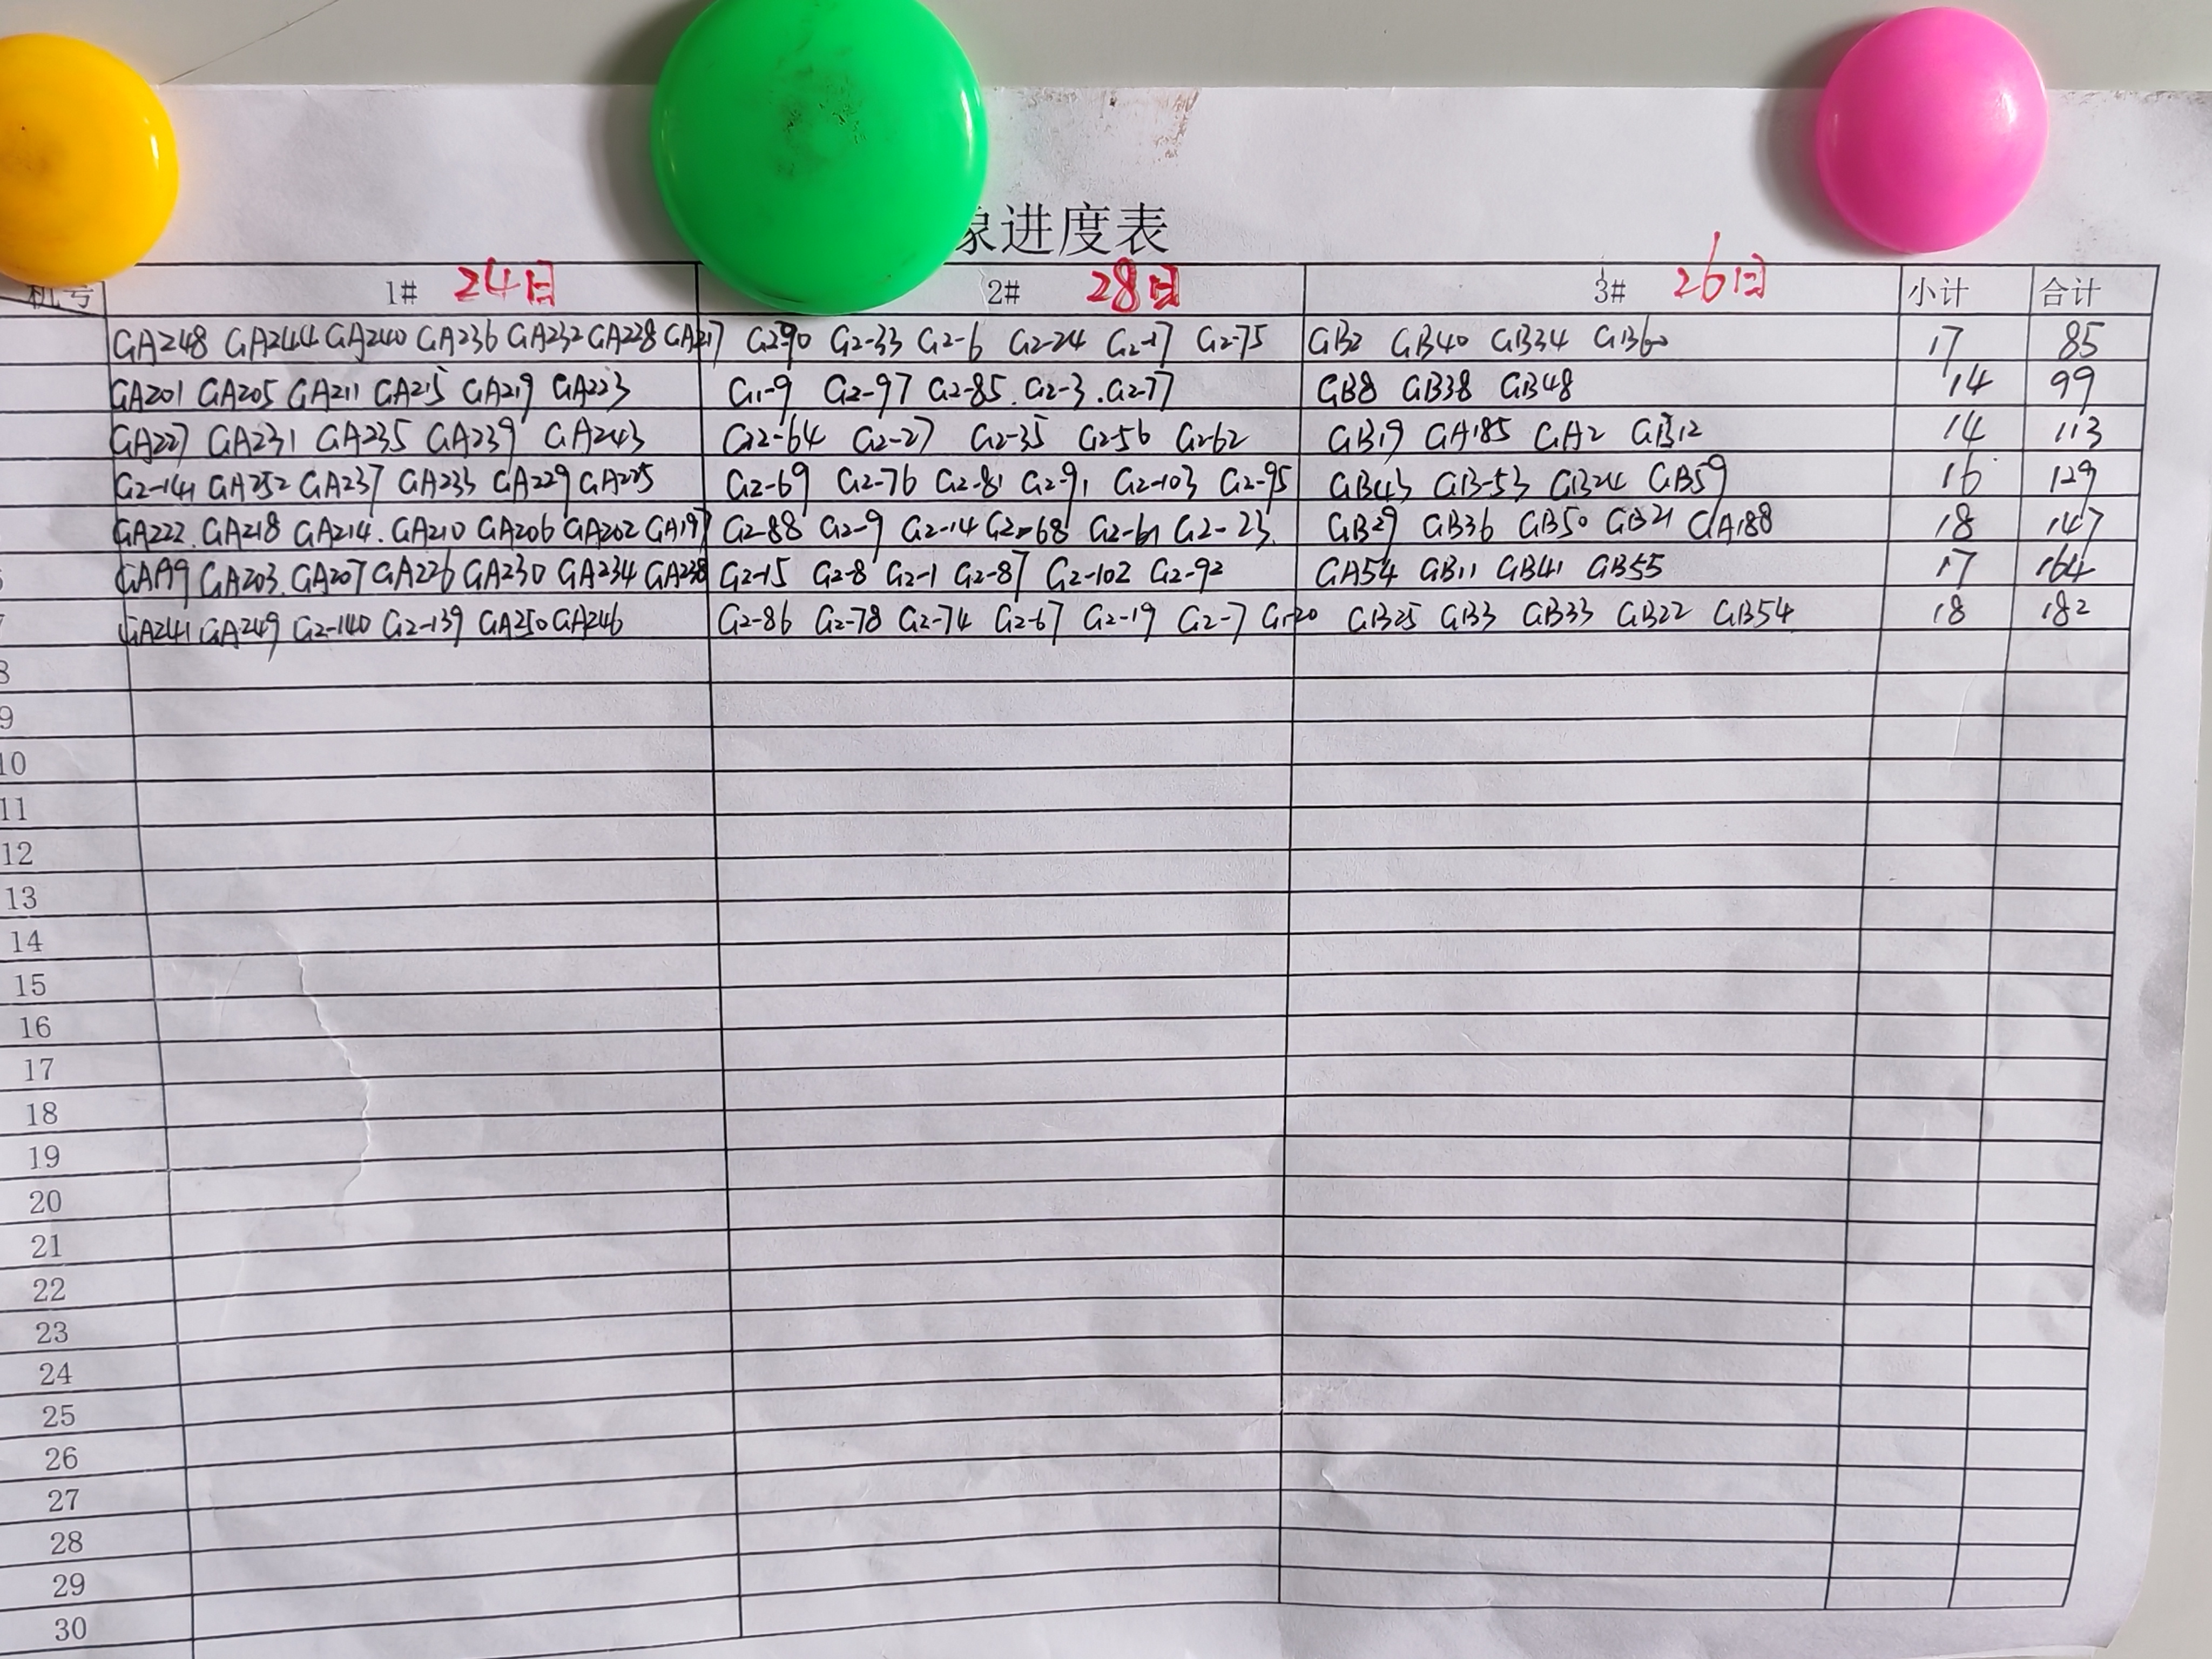 象进度表
机号 1# 24日 2# 28日 3# 26日 小计 合计
GA248 GA244 GA240 GA236 GA232 GA228 GA217 G2-90 G2-33 G2-6 G2-24 G2-17 G2-75 GB2 GB40 GB34 GB60 17 85
GA201 GA205 GA211 GA215 GA219 GA223 G1-9 G2-97 G2-85. G2-3. G2-77 GB8 GB38 GB48 14 99
GA227 GA231 GA235 GA239 GA243 G2-64 G2-27 G2-35 G2-56 G2-62 GB19 GA185 GA2 GB12 14 113
G2-141 GA252 GA237 GA233 GA229 GA225 G2-69 G2-76 G2-81 G2-91 G2-103 G2-95 GB43 GB-53 GB24 GB59 16 129
GA222. GA218 GA214. GA210 GA206 GA202 GA197 G2-88 G2-9 G2-14 G2-68 G2-61 G2-23. GB29 GB36 GB50 GB21 GA188 18 147
GA199 GA203. GA207 GA226 GA230 GA234 GA238 G2-15 G2-8 G2-1 G2-87 G2-102 G2-92 GA54 GB11 GB41 GB55 17 164
GA241 GA249 G2-140 G2-139 GA250 GA246 G2-86 G2-78 G2-74 G2-67 G2-19 G2-7 G1-20 GB25 GB3 GB33 GB22 GB54 18 182
8
9
10
11
12
13
14
15
16
17
18
19
20
21
22
23
24
25
26
27
28
29
30